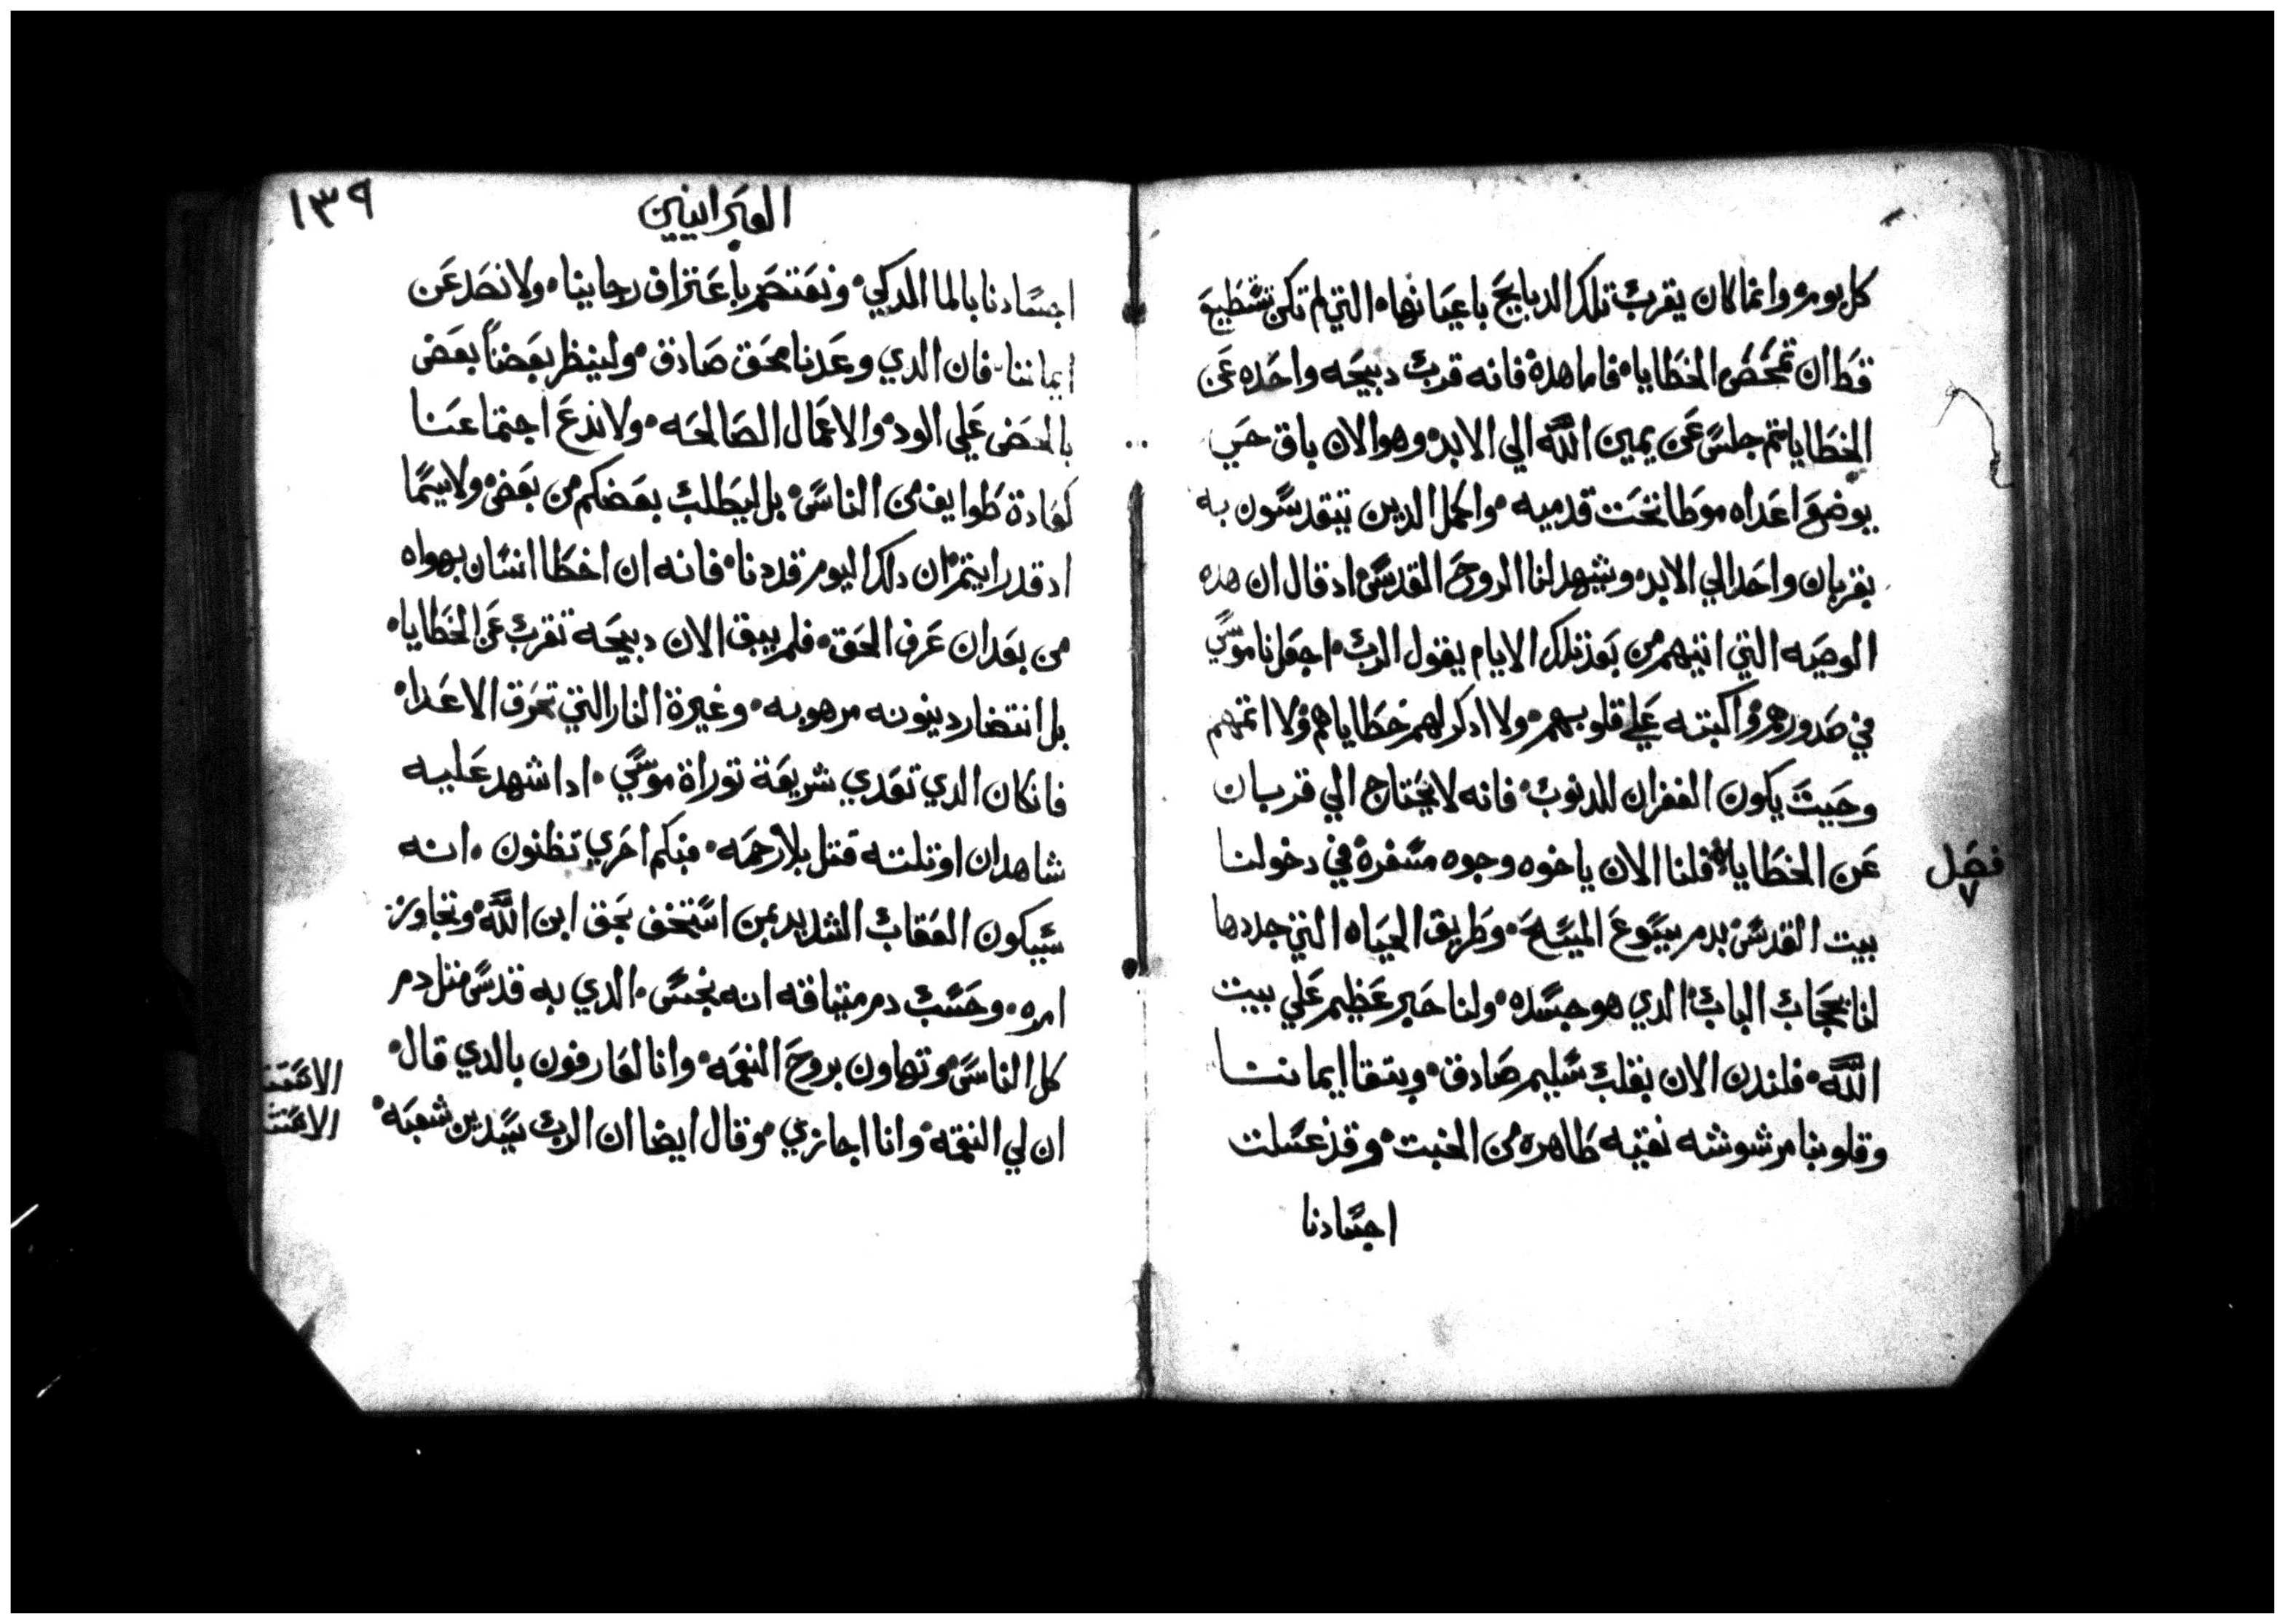 كل يوم٠ وانما كان يقرب تلك الدبايح باعيانها٠ التي لم تكن تستطيع
قط ان تمحص الخطايا٠ فاما هدة فانه قرب دبيحه واحده عن
الخطايا تم جلس عن يمين الله الي الابد٠ وهو الان باق حتي
يوضع اعداه موطا تحت قدميه٠ واكمل الدين يتقدسون به
بقربان واحد الي الابد٠ ويشهد لنا الروح القدس٠ اد قال ان هده
الوصيه التي اتيهم من بعد تلك الايام يقول الرب٠ اجعل ناموسي
في صدورهم٠ واكبته علي قلوبهم٠ ولا ادكر لهم خطاياهم ولا اتمهم
وحيت يكون الغفران للدنوب٠ فانه لا يحتاج الي قربان
عن الخطايا٠ فلنا الان ياخوه وجوه مسفرة في دخولنا
فصل
٧
بيت القدس٠ بدم يسوع المسيح٠ وطريق الحياه التي جددها
لنا بحجاب الباب٠ الدي هو جسده٠ ولنا حبر عظيم علي بيت
الله٠ فلندن الان بقلب سليم صادق٠ وبتقا ايماننا
وقلوبنا مرشوشه نقيه طاهره من الخبت٠ وقد غسلت
اجسادنا
١٣٩
العبرانيين
اجسادنا بالما الدكي٠ ونعتصم باعتراف رجاينا٠ ولا نصد عن
ايماننا٠ فان الدي وعدنا محق صادق٠ ولينظر بعضناً بعض
بالحض علي الود٠ والاعمال الصالحه٠ ولا ندع اجتماعنا
كعادة طوايف من الناس٠ بل ليطلب بعضكم من بعض٠ ولاسيما
اد قد رايتم ان دلك اليوم قد دنا٠ فانه ان اخطا انسان بهواه
من بعد ان عرف الحق٠ فلم يبق الان دبيحه تقرب عن الخطايا٠
بل انتضار دينونه مرهوبه٠ وغيرة النار التي تحرق الاعدا٠
فان كان الدي تعدي شريعة توراة موسي٠ ادا شهد عليه
شاهدان او تلته قتل بلا رحمه٠ فبكم احري تظنون٠ انه
سيكون العقاب الشديد بمن استخف بحق ابن الله٠ وتجاوز
امره٠ وحسب دم ميتاقه انه نجس٠ الدي به قدس متل دم
كل الناس٠ وتهاون بروح النعمه٠ وانا لعارفون بالدي قال٠
ان لي النقمه٠ وانا اجازي٠ وقال ايضا ان الرب سيدين شعبه٠